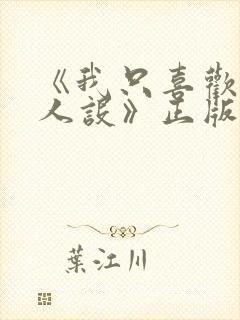 《我只喜歡
人設》正版
葉江川